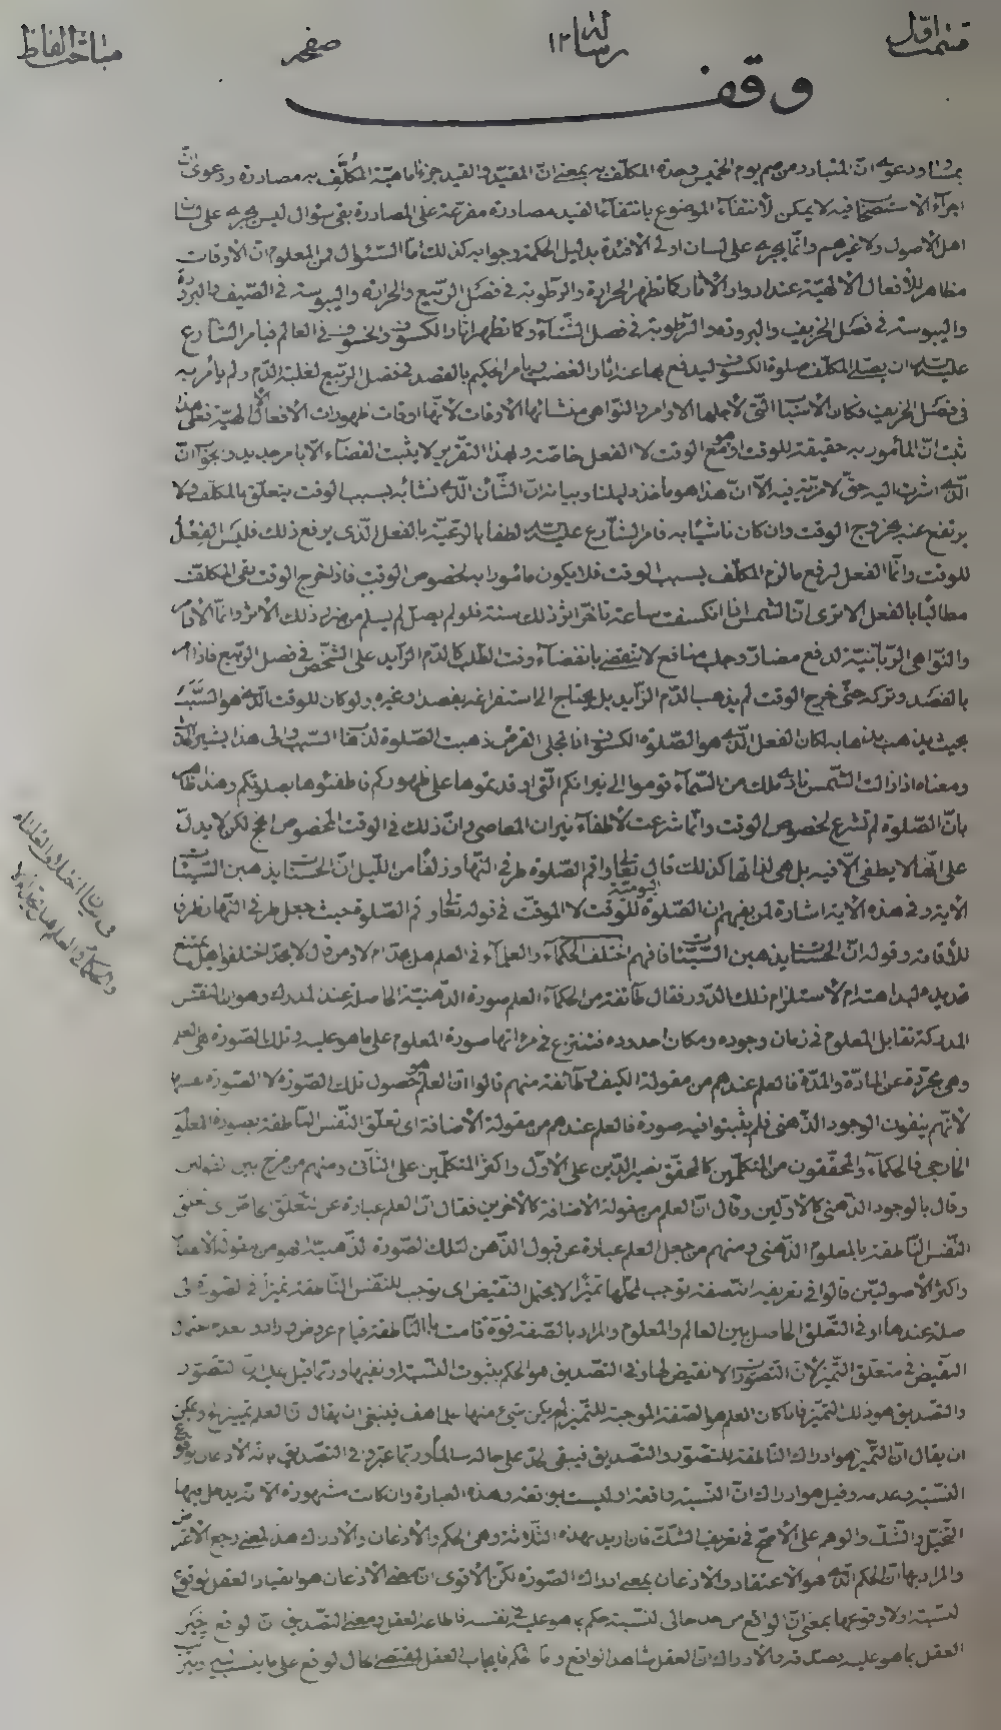 قسمت اول رسالة ١٢ صفحه مباحث الفاظ
وقف
ودعوى ان المتبادر من صم يوم الخميس وحدة المكلف به بمعنى ان المقيد والقيد جزءا ماهية المكلف به مصادرة ودعوى ان
اجراء الاستصحاب فيه لا يمكن لانتفاء الموضوع بانتفاء القيد مصادرة مفرعة على المصادرة بقى سؤال ليس يجرى على
اهل الاصول ولا غيرهم وانما يجرى على لسان اولى الافئدة بدليل الحكمة وجوابه كذلك اما السئوال فمن المعلوم ان الاوقات
مظاهر للأفعال الالهية عند ادوار الاثار كما تظهر الحرارة والرطوبة في فصل الربيع والحرارة واليبوسة في الصيف والبرودة
واليبوسة في فصل الخريف والبرودة والرطوبة في فصل الشتاء وكما تظهر اثار الكسوف والخسوف في العالم فيامر الشارع
ان يصلى المكلف صلوة الكسوف ليدفع بها عنه اثار الغضب ويامر الحكيم بالفصد في فصل الربيع لغلبة الدم ولم يأمر به
في فصل الخريف فكان الاسباب التى لاجلها الاوامر والنواهى منشائها الاوقات لانها اوقات ظهورات الافعال الالهية فعلى هذا
ثبت ان المأمور به حقيقة للوقت او مع الوقت لا الفعل خاصة ولهذا التقرير لا يثبت القضاء الا بامر جديد والجواب ان
الذى اشرت اليه حق لا مرية فيه الا ان هذا هو مأخذ دليلنا وبيانه ان الشأن الذى نشا به بسبب الوقت يتعلق بالمكلف ولا
يرتفع عنه بخروج الوقت وان كان ناشئا به فامر الشارع لطفا بالرعية بالفعل الذى يرفع ذلك فليس الفعل
للوقت وانما الفعل لرفع ما لزم المكلف بسبب الوقت فلا يكون مامورا به لخصوص الوقت فاذا خرج الوقت بقى المكلف
مطالبا بالفعل الا ترى ان الشمس اذا انكسفت ساعة تأخر اثر ذلك سنة فلو لم يصل لم يسلم من ضرر ذلك الاثر وانما الاوامر
والنواهى الربانية لدفع مضار وجلب منافع لا تنقضى بانقضاء وقت الطلب كالدم الزايد على الشخص في فصل الربيع فاذا امر
بالفصد وتركه حتى خرج الوقت لم يذهب الدم الزايد بل يحتاج الى استفراغه بفصد او غيره ولو كان للوقت الذى هو السبب
بحيث يذهب بذهابه لكان الفعل الذى هو الصلوة الكسوف اذا تجلى القرص ذهبت الصلوة لذهاب السبب والى هذا يشير
ومعناه اذا زالت الشمس نادى ملك من السماء قوموا الى نيرانكم التى اوقدتموها على ظهوركم فاطفئوها بصلوتكم وهذا ظاهر
بان الصلوة لم تشرع لخصوص الوقت وانما شرعت لاطفاء نيران المعاصى وان ذلك في الوقت المخصوص انجح لكن لا يدل
على انها لا يطفى الا فيه بل هى لذاتها كذلك قال تعالى واقم الصلوة طرفى النهار وزلفا من الليل ان الحسنات يذهبن السيئات
الاية وفي هذه الاية اشارة لمن يفهم ان الصلوة اليومية للوقت لا الموقت في قوله تعالى واقم الصلوة حيث جعل طرفى النهار ظرفا
للأقامة وقوله ان الحسنات يذهبن السيئات فافهم اختلف الحكماء والعلماء في العلم هل يحد ام لا ومن قال لا يحد اختلفوا هل يمتنع
تحديده ام لا لاستلزام ذلك الدور فقال طائفة من الحكماء العلم صورة الذهنية الحاصلة عند المدرك وهو ان النفس
المدركة تقابل المعلوم في زمان وجوده ومكان حدوده فتنتزع في مرءاتها صورة المعلوم على ما هو عليه وتلك الصورة هى العلم
وهى مجردة عن المادة والمدة فالعلم عندهم من مقولة الكيف وطائفة منهم قالوا ان العلم هو حصول تلك الصورة لا الصورة نفسها
لانهم ينفون الوجود الذهنى فلم يثبتوا فيه صورة فالعلم عندهم من مقولة الأضافة اى تعلق النفس الناطقة بصورة المعلوم
الخارجى فالحكماء والمحققون من المتكلمين كالمحقق نصير الدين على الاول واكثر المتكلمين على الثانى ومنهم من مزج بين القولين
وقال بالوجود الذهنى كالأولين وقال ان العلم من مقولة الاضافة كالأخرين فقال ان العلم عبارة عن التعلق الخاص اى تعلق
النفس الناطقة بالمعلوم الذهنى ومنهم من جعل العلم عبارة عن قبول الذهن لتلك الصورة الذهنية فهو من مقولة الانفعال
واكثر الأصوليين قالوا في تعريفه انه صفة توجب لمحلها تميزا لا يحتمل النقيض اى توجب للنفس الناطقة تميزا في الصورة
عندها او في التعلق الحاصل بين العالم والمعلوم والمراد بالصفة قوة قامت بالناطقة قيام عروض والمراد بعدم احتمال
النقيض في متعلق التميز لأن التصورات لا نقيض لها وفي التصديق هو الحكم بثبوت النسبة او نفيها وربما قيل عليه ان التصور
والتصديق هو ذلك التميز فاما كان العلم هو الصفة الموجبة للتميز لم يكن شىء منها علما هف فينبغى ان يقال ان العلم تمييز ويمكن
ان يقال ان التميز هو ادراك الناطقة للتصور والتصديق فيبقى الحد على حاله سالما وربما عبر في التصديق بانه الأذعان بوقوع
النسبة وعدمه وقيل هو ادراك ان النسبة واقعة او ليست بواقعة وهذه العبارة وان كانت مشهورة الا انه يدخل فيها
التخيل والشك والوهم على الأصح في تعريف الشك فان اريد بهذه الثلاثة وهى الحكم والأذعان والأدراك هذا المعنى رجع الاعتراض
والمراد بها ان الحكم الذى هو الاعتقاد والأذعان بمعنى ادراك الصورة لكن الأقوى ان معنى الأذعان هو انقياد العقل لوقوع
النسبة او لا وقوعها بمعنى ان الواقع من حالى النسبة حكم بما هو عليه في نفسه فاطاعه العقل ومعنى التصديق ان الواقع خبر
العقل بما هو عليه فصدقه والأدراك ان العقل شاهد الواقع
في بيان اختلاف العلماء
والحكماء في العلم هل يحد ام لا